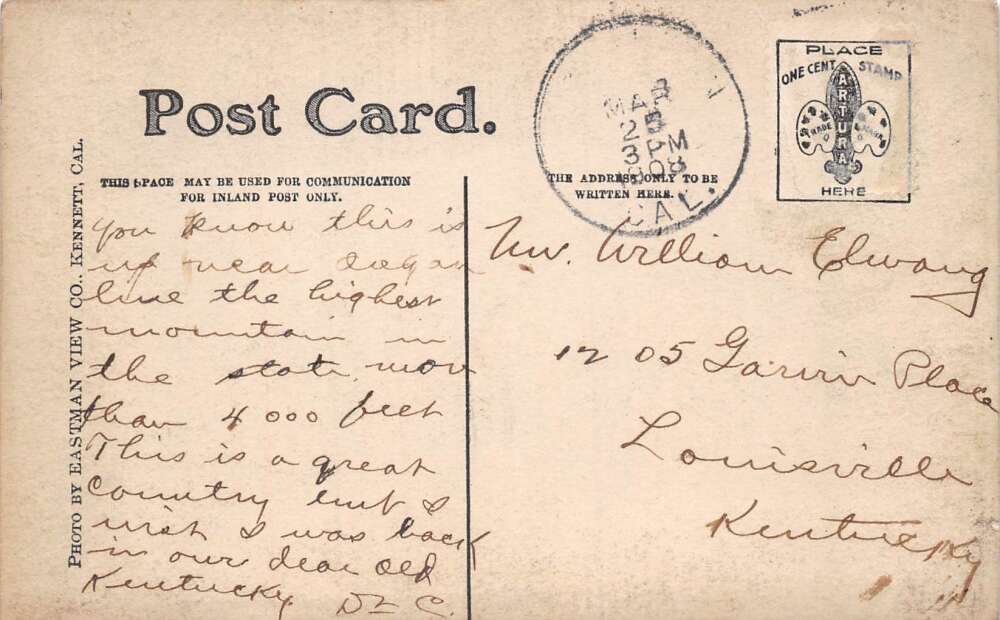 Post Card.
THIS SPACE MAY BE USED FOR COMMUNICATION
FOR INLAND POST ONLY.
THE ADDRESS ONLY TO BE
WRITTEN HERE.
MAR
25
3 PM
1908
CAL.
PLACE
ONE CENT STAMP
ARTURA
TRADE MARK
HERE
PHOTO BY EASTMAN VIEW CO., KENNETT, CAL.
you know this is
up near
line the highest
mountain in
the state more
than 4000 feet
This is a great
Country but I
wish I was back
in our dear old
Kentucky Dr C.
Mr. William Elwang
1205 Garvin Place
Louisville
Kentucky